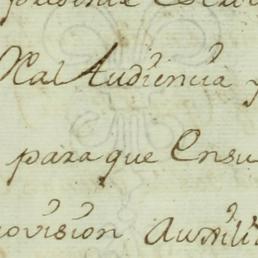 Real Audiencia
para que Ensu
ovision Auxili